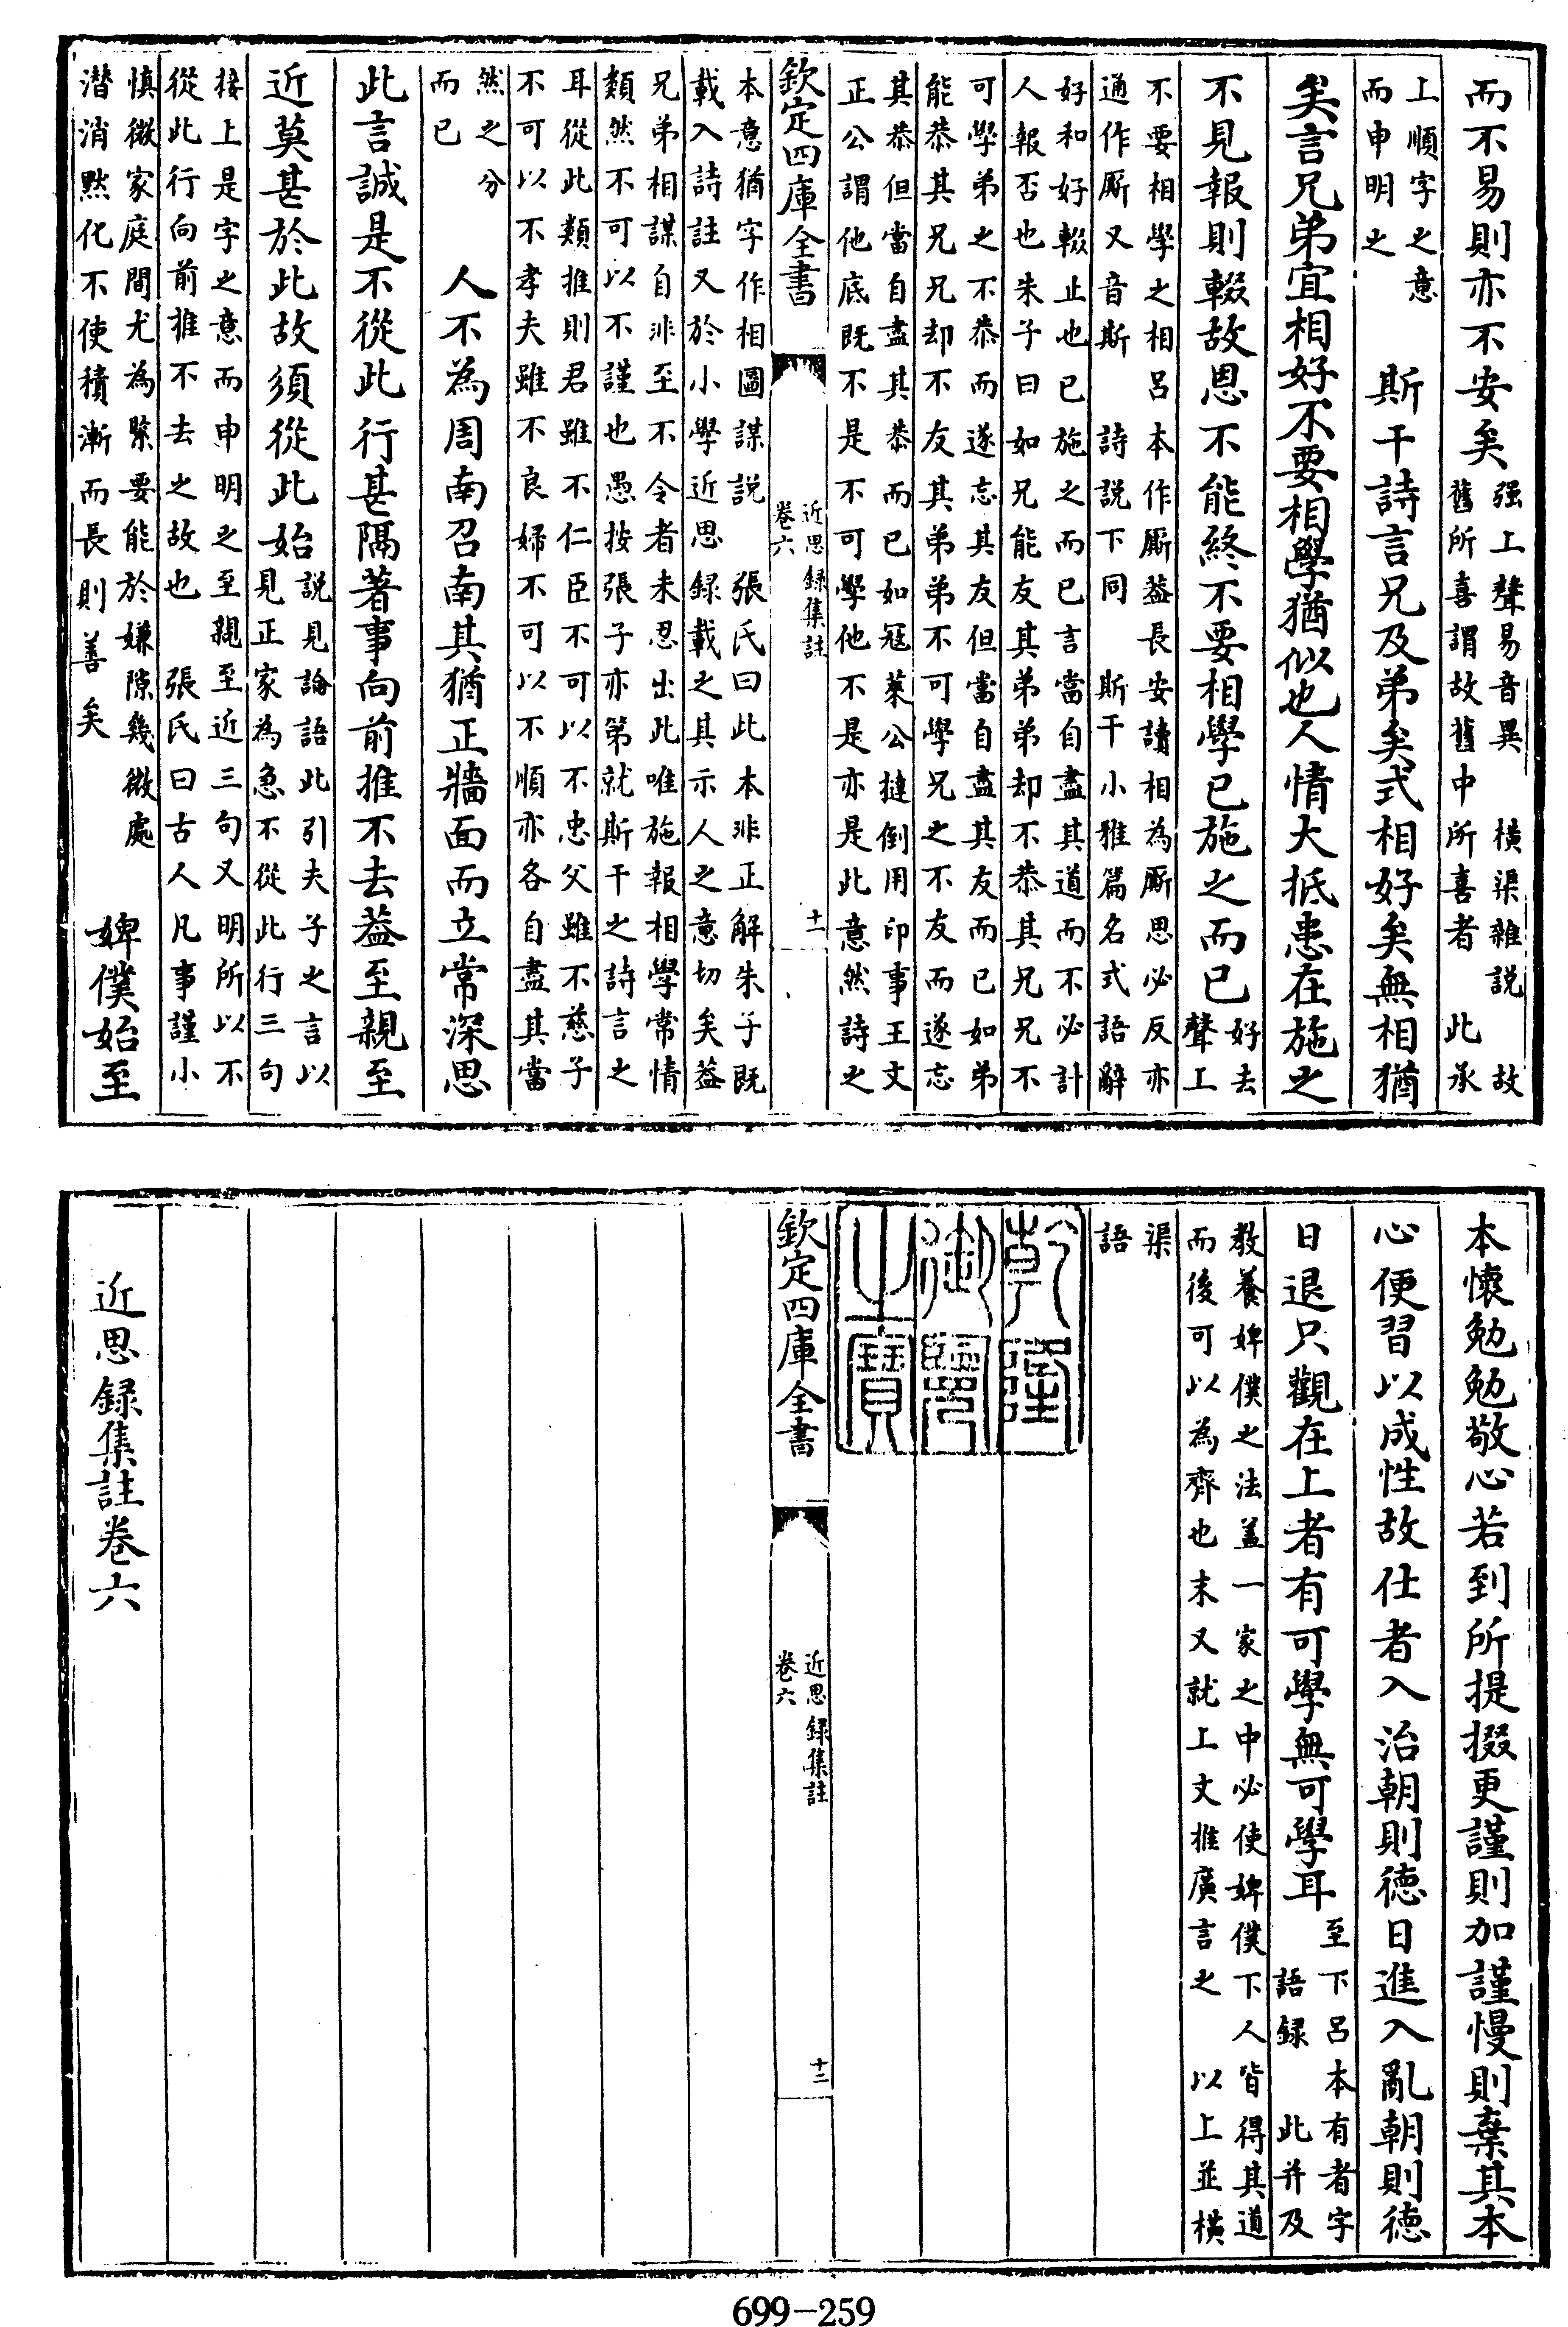 而不易則亦不安矣
强上聲易音異 横渠雜説 故
舊所喜謂故舊中所喜者 此承
上順字之意
而申明之
斯干詩言兄及弟矣式相好矣無相猶
矣言兄弟宜相好不要相學猶似也人情大抵患在施之
不見報則輟故恩不能終不要相學已施之而已
好去
聲工
不要相學之相吕本作厮葢長安讀相為厮思必反亦
通作厮又音斯 詩説下同 斯干小雅篇名式語辭
好和好輟止也已施之而已言當自盡其道而不必計
人報否也朱子曰如兄能友其弟弟却不恭其兄兄不
可學弟之不恭而遂忘其友但當自盡其友而已如弟
能恭其兄兄却不友其弟弟不可學兄之不友而遂忘
其恭但當自盡其恭而已如冦萊公撻倒用印事王文
正公謂他底既不是不可學他不是亦是此意然詩之
欽定四庫全書
近思録集註
卷六
十一
本意猶字作相圖謀説 張氏曰此本非正解朱子既
載入詩註又於小學近思録載之其示人之意切矣葢
兄弟相謀自非至不令者未忍出此唯施報相學常情
類然不可以不謹也愚按張子亦第就斯干之詩言之
耳從此類推則君雖不仁臣不可以不忠父雖不慈子
不可以不孝夫雖不良婦不可以不順亦各自盡其當
然之分
而已
人不為周南召南其猶正牆面而立常深思
此言誠是不從此行甚隔著事向前推不去葢至親至
近莫甚於此故須從此始
説見論語此引夫子之言以
見正家為急不從此行三句
接上是字之意而申明之至親至近三句又明所以不
從此行向前推不去之故也 張氏曰古人凡事謹小
慎微家庭間尤為緊要能於嫌隙幾微處
潜消黙化不使積漸而長則善矣
婢僕始至
本懐勉勉敬心若到所提掇更謹則加謹慢則棄其本
心便習以成性故仕者入治朝則徳日進入亂朝則徳
日退只觀在上者有可學無可學耳
至下吕本有者字
語録 此并及
教養婢僕之法葢一家之中必使婢僕下人皆得其道
而後可以為齊也末又就上文推廣言之 以上並横
渠
語
乾隆
御覽
之寶
欽定四庫全書
近思録集註
卷六
十二
近思録集註卷六
699-259